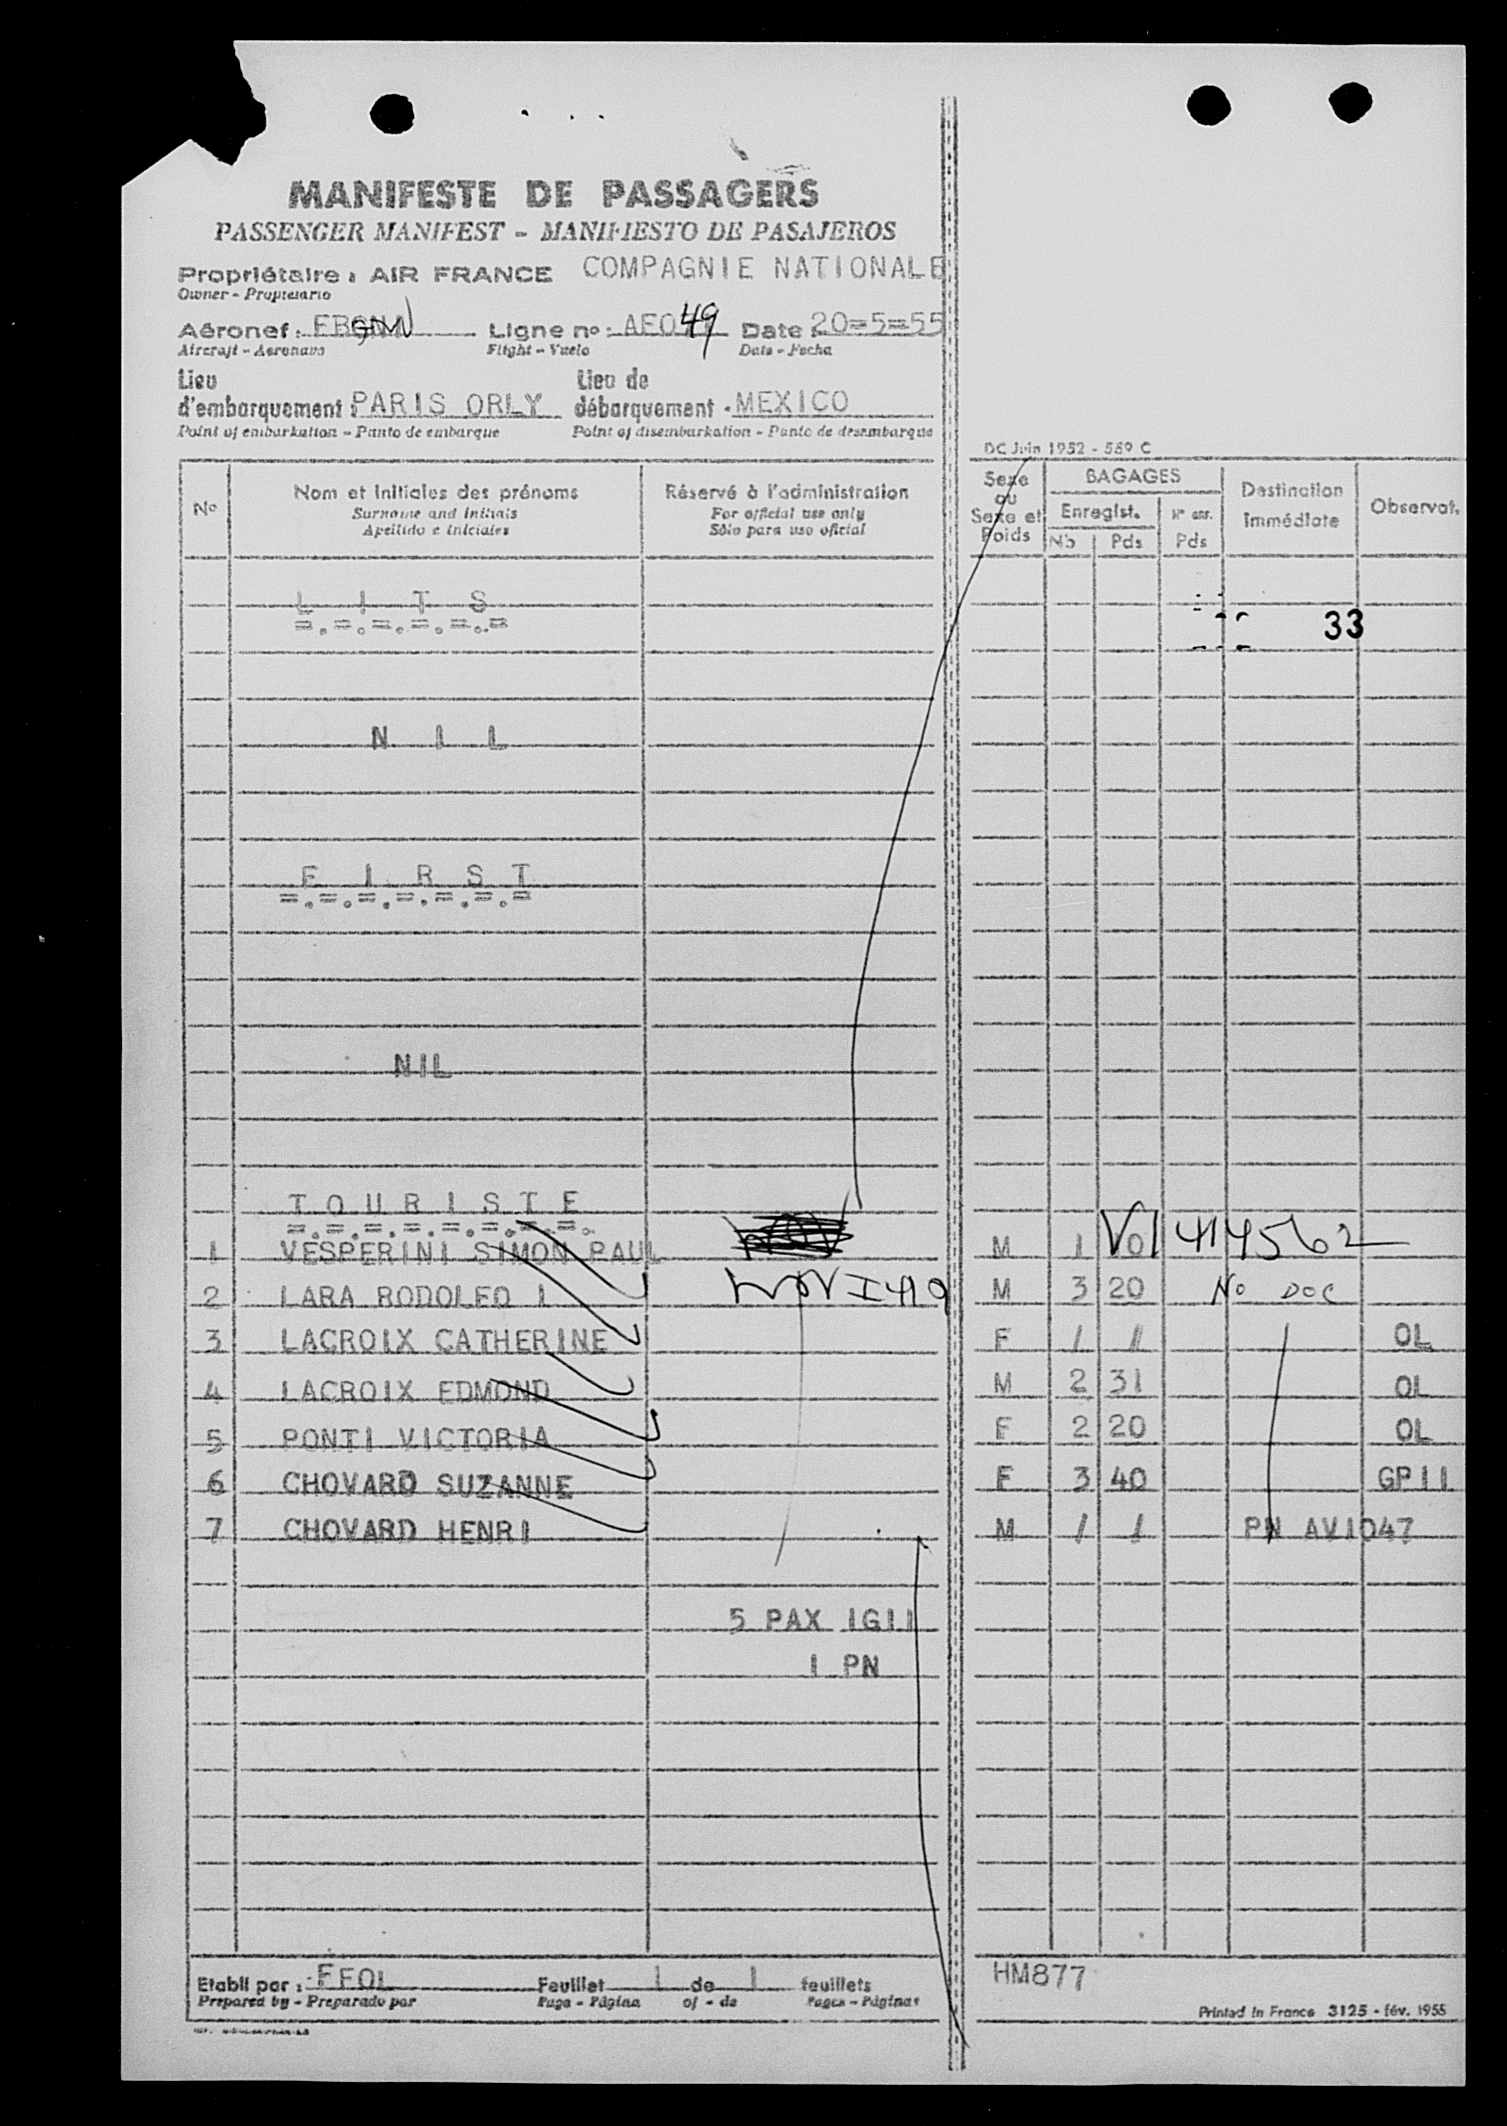 MANIFESTE DE PASSAGERS
PASSENGER MANIFEST - MANIFIESTO DE PASAJEROS
Propriétaire : AIR FRANCE COMPAGNIE NATIONALE
Owner - Propietario
Aéronef : Ligne no : 49 Date : 20=5=55
Aircraft - Aeronave Flight - Vuelo Date - Fecha
Lieu d'embarquement : PARIS ORLY Lieu de débarquement - MEXICO
Point of embarkation - Punto de embarque Point of disembarkation - Punto de desembarque
DC Juin 1952 - 569 C
No
Nom et initiales des prénoms
Surname and initials
Apellido e iniciales
Réservé à l'administration
For official use only
Sólo para uso oficial
Sexe ou Sexe et Poids
BAGAGES
Enregist.
Nb Pds
Nº enr.
Pds
Destination immédiate
Observat.
L I T S
=.=.=.=.=.=
33
N I L
F I R S T
=.=.=.=.=.=.=
NIL
T O U R I S T E
=.=.=.=.=.=.=.=.
1 VESPERINI SIMON PAUL M 1 V01414562
2 LARA RODOLFO I I419 M 3 20 NO DOC
3 LACROIX CATHERINE F / / OL
4 LACROIX EDMOND M 2 31 OL
5 PONTI VICTORIA F 2 20 OL
6 CHOVARD SUZANNE F 3 40 GP11
7 CHOVARD HENRI M / / PN AV1047
5 PAX IG11
1 PN
Etabli par : FFOL Feuillet 1 de 1 feuillets
Prepared by - Preparado por Page - Página of - de Pages - Páginas
HM877
Printed in France 3125 - fév. 1955